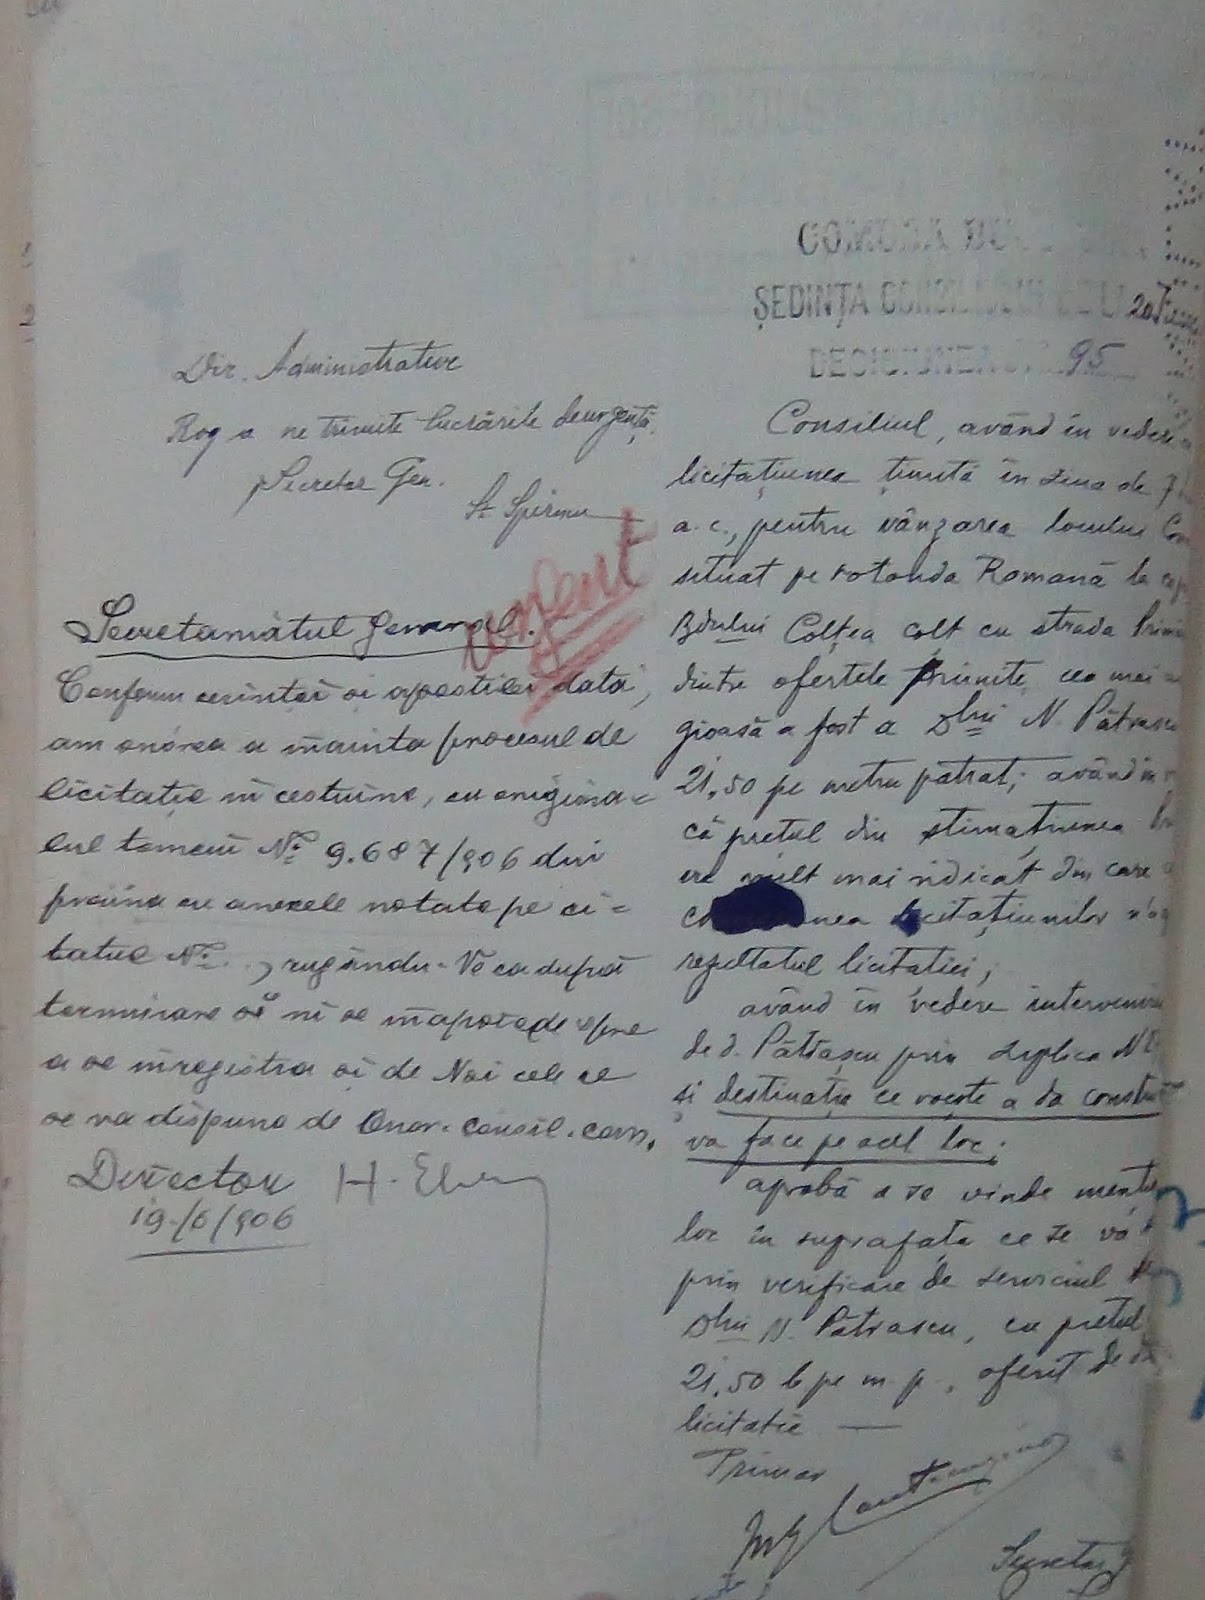 Dir. Administrative
Rog a ne trimite lucrările de urgență.
Secretar Gen.
urgent
Secretariatul General.
Conform cerinței și apostilei data,
am onórea a inainta procesul de
licitație in cestiune, cu origina=
lul tomein № 9.687/906 din
preuna cu anexele notate pe ci=
tatul №, rugându-Vĕ ca după
terminare sĕ ni se inapoeze spre
a se inregistra și de Noi cele ce
se va dispune de Onor. Consil. com.
Director H.
19/6/906
COMUNA
ȘEDINȚA CONSILIULUI 20
DECISIUNEA 95
Consiliul, având în vedere
licitațiunea ținută în ziua de 7
a.c., pentru vânzarea locului
situat pe rotonda Romană la
Bdului Colțea colț cu strada
dintre ofertele primite, cea mai
gioasă a fost a Dlui N. Pătrașcu
21,50 pe metru pătrat; având în
că prețul din estimațiunea
era mult mai ridicat din care
licitațiunilor
rezultatul licitatiei;
având în vedere
de d. Pătrașcu prin suplica №
și destinație ce voește a da
va face pe acel loc;
aprobă a se vinde
loc în suprafața ce se va
prin verificare de serviciul
Dlui N. Pătrascu, cu prețul
21,50 l pe m.p., oferit de
licitatie —
Primar
Secretar